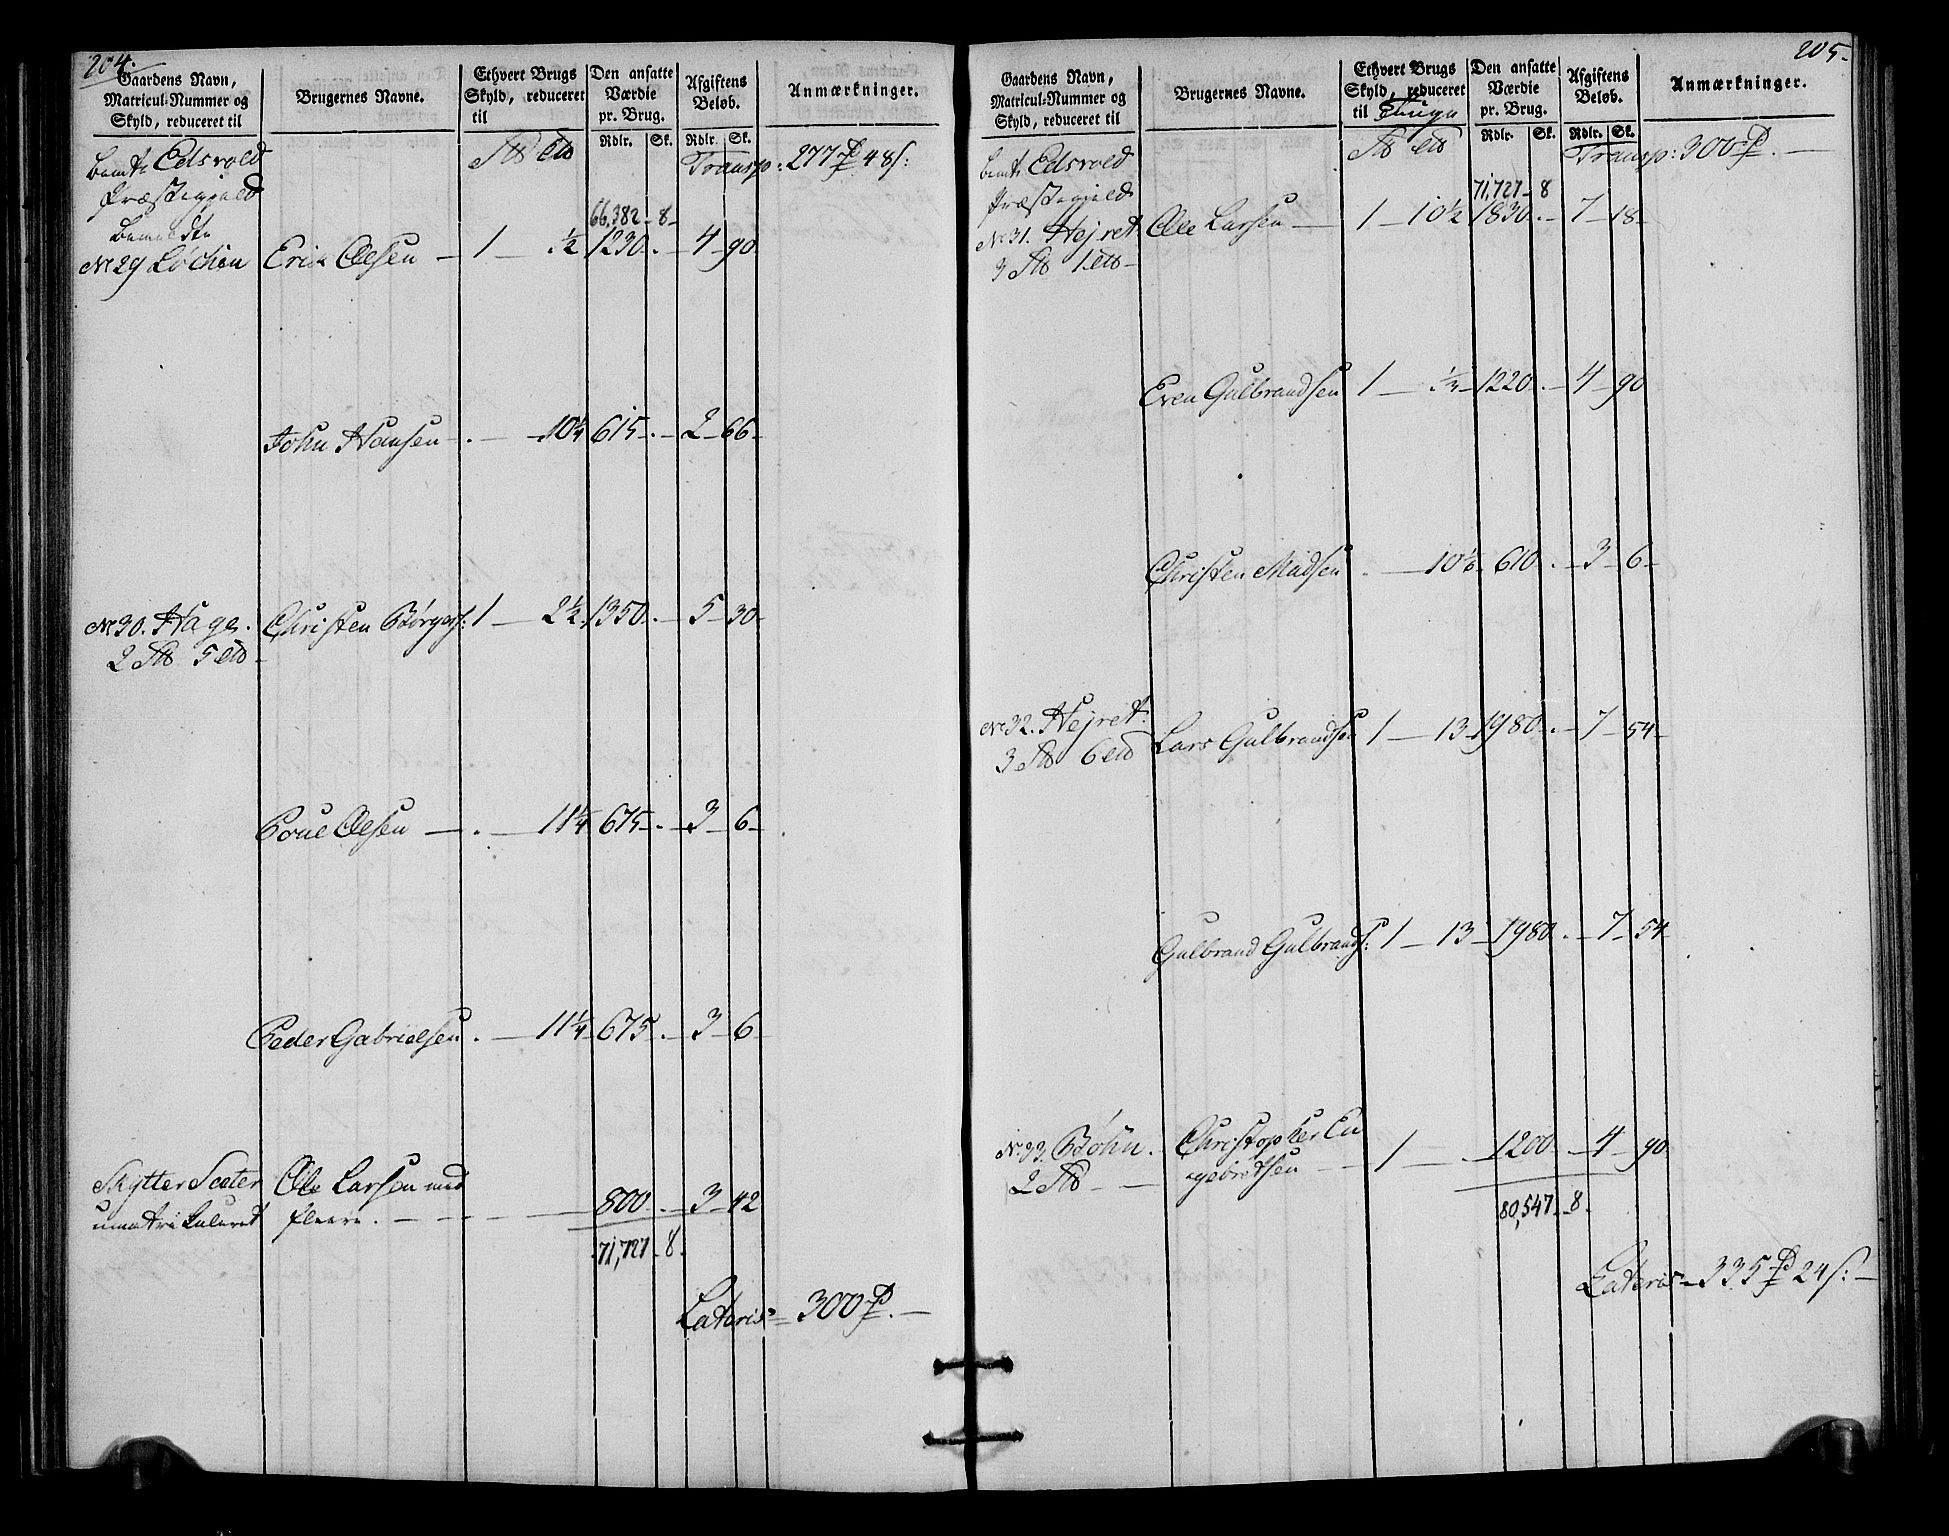 204.
Gaardens Navn, Matricul-Nummer og Skyld, reduceret til
Brugernes Navne.
Ethvert Brugs Skyld, reduceret til
Den ansatte Værdie pr. Brug.
Afgiftens Beløb.
Anmærkninger.
Rdlr. Sk. Rdlr. Sk.
bemte Edsvold
Præstegjeld
Transp: 277 48 s:
66,382 - 8 -
bemeldte
No 29 Løchen Erich Olesen 1 - ½ 1230 - . - 4 - 90
John Hansen - . - 10¼ 615 - . - 2 - 66 -
No 30. Hage. Christen Børgers: 1 - 2½ 1350 - . - 5 - 30 -
2 5
Poul Olesen - . - 11¼ 675 - . - 3 - 6 -
Peder Gabrielsen . - 11¼ 675 . - 3 - 6 -
Skytter Sæter Ole Larsen med
umatriculeret fleere . - - - 800 - . - 3 - 42
71,727 - 8 .
Lateris = 300 . -
205.
Gaardens Navn, Matricul-Nummer og Skyld, reduceret til
Brugernes Navne.
Ethvert Brugs Skyld, reduceret til Tunge
Den ansatte Værdie pr. Brug.
Afgiftens Beløb.
Anmærkninger.
Rdlr. Sk. Rdlr. Sk.
bemte Edsvold
Præstegjeld
Transp: 300 . -
71,727 - 8
No 31. Hejret Ole Larsen - 1 - 10½ 1830 - . - 7 - 18 -
3 1
Even Gulbrandsen 1 - ⅓ - 1220 . - 4 - 90
Christen Madsen . - 10⅙ 610 . - 3 - 6 -
No 32. Hejret Lars Gulbrandsen 1 - 13 - 1980 - . - 7 - 54 -
3 6
Gulbrand Gulbrands: 1 - 13 - 1980 . - 7 - 54
No 33. Bøhn. Christopher En
2 gebretsen - 1 - . 1200 - 4 - 90
80,547 - 8 .
Lateris = 335 24 s: -